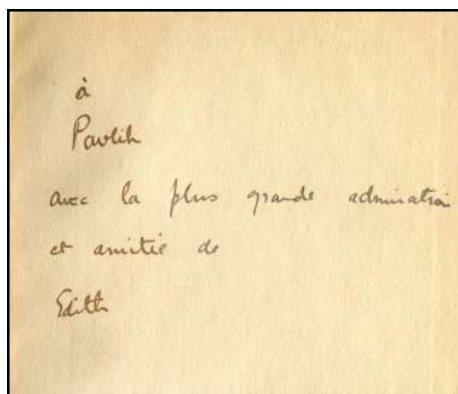 à
Pavlik
avec la plus grande admiration
et amitié de
Edith